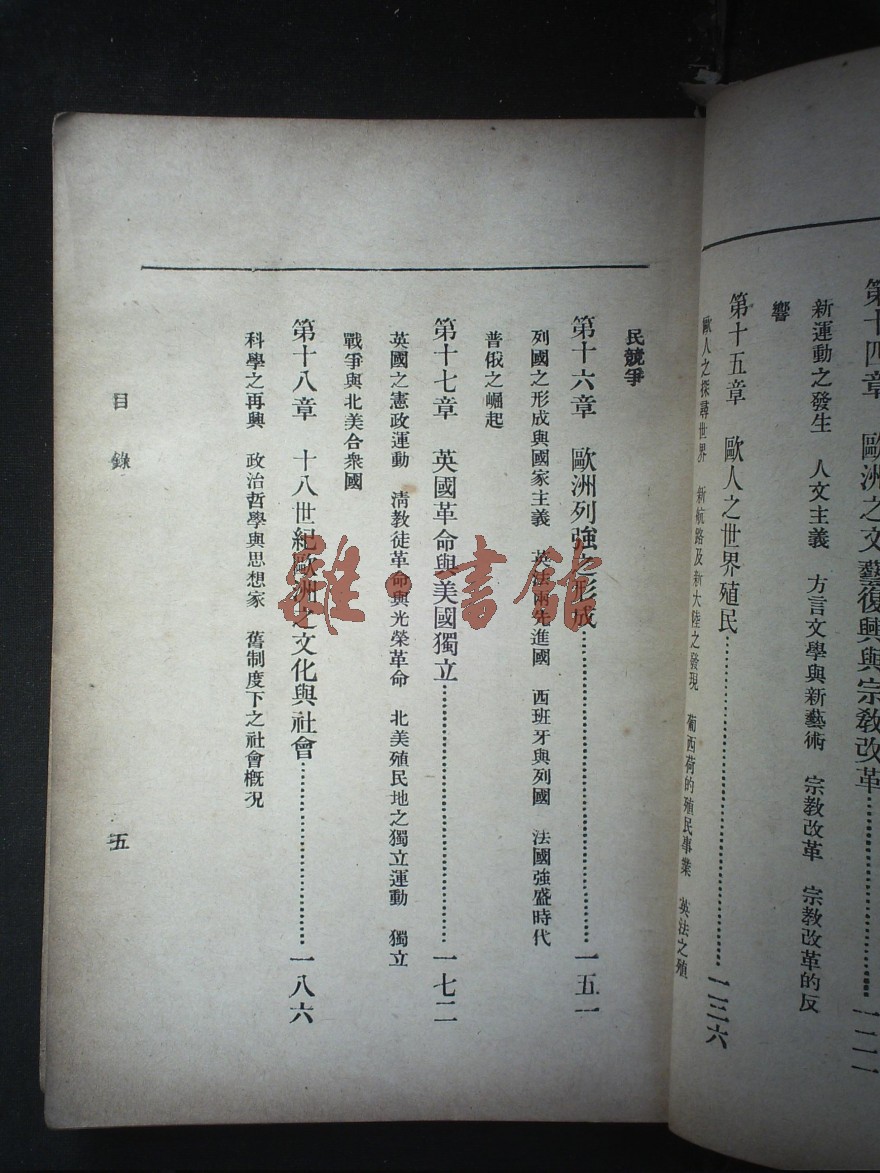 第十四章　歐洲之文藝復興與宗教改革……一二一
新運動之發生　人文主義　方言文學與新藝術　宗教改革　宗教改革的反
響
第十五章　歐人之世界殖民……一三六
歐人之探尋世界　新航路及新大陸之發現　葡西荷的殖民事業　英法之殖
民競爭
第十六章　歐洲列強之形成……一五一
列國之形成與國家主義　英法兩先進國　西班牙與列國　法國強盛時代
普俄之崛起
第十七章　英國革命與美國獨立……一七二
英國之憲政運動　清教徒革命與光榮革命　北美殖民地之獨立運動　獨立
戰爭與北美合衆國
第十八章　十八世紀歐洲之文化與社會……一八六
科學之再興　政治哲學與思想家　舊制度下之社會概況
目錄
五
雜·書館